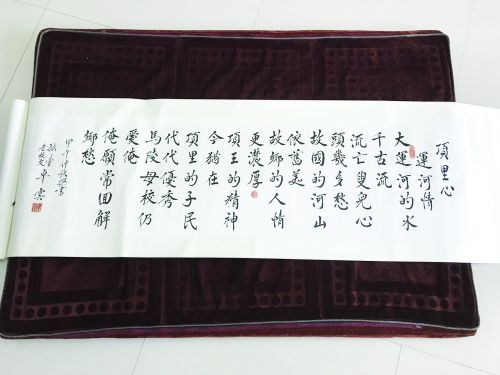 項里心
運河情
大運河的水
千古流
流亡叟兒心
頭幾多愁
故國的河山
依舊美
故鄉的人情
更濃厚
項王的精神
今猶在
項里的子民
代代優秀
馬陵母校仍
愛俺
俺願常回解
鄉愁
甲午仲秋
老校友 卓雲